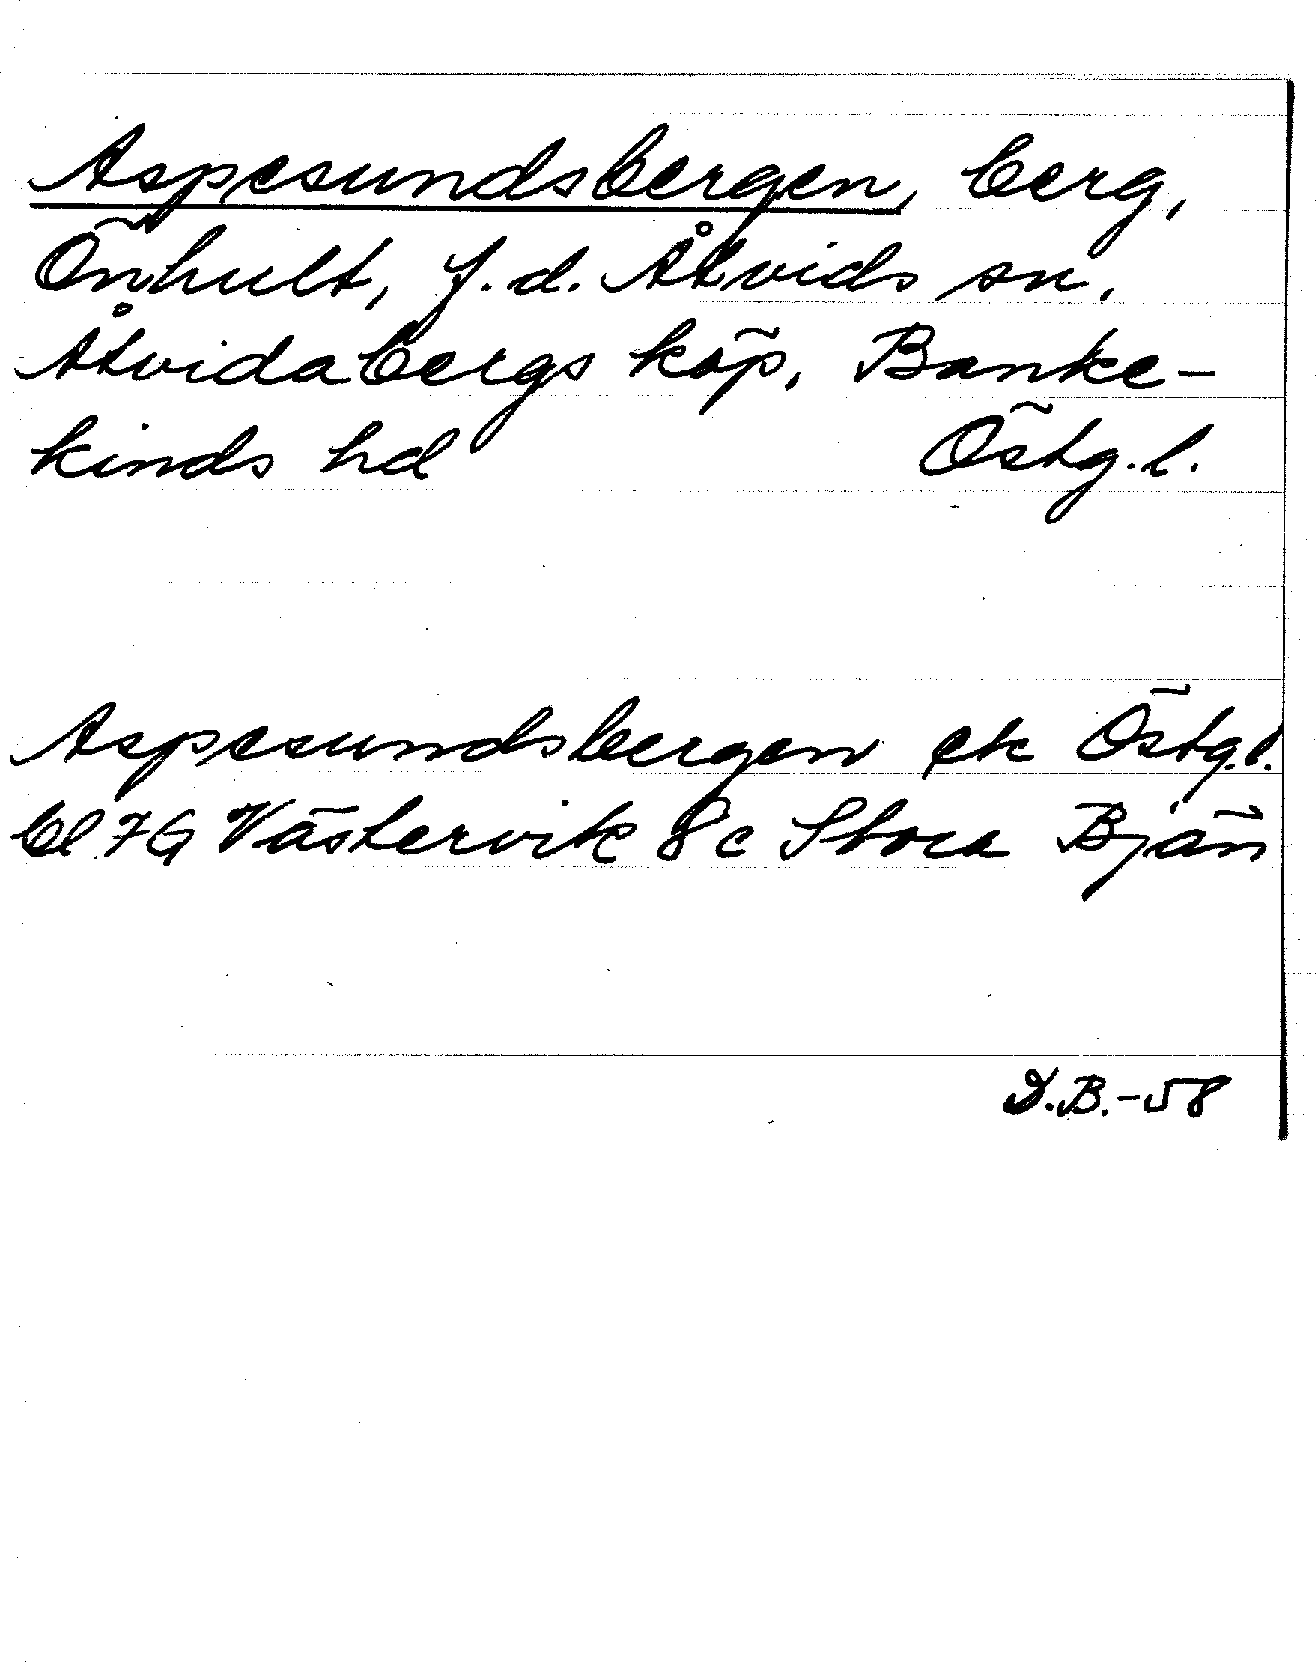 Aspesundsbergen, berg,
Önhult, f.d. Åtvids sn,
Åtvidabergs köp, Banke-
kinds hd Östg.l.
Aspesundsbergen ek Östg.l.
bl 7G Västervik 8c Stora Bjän
D.B.-58